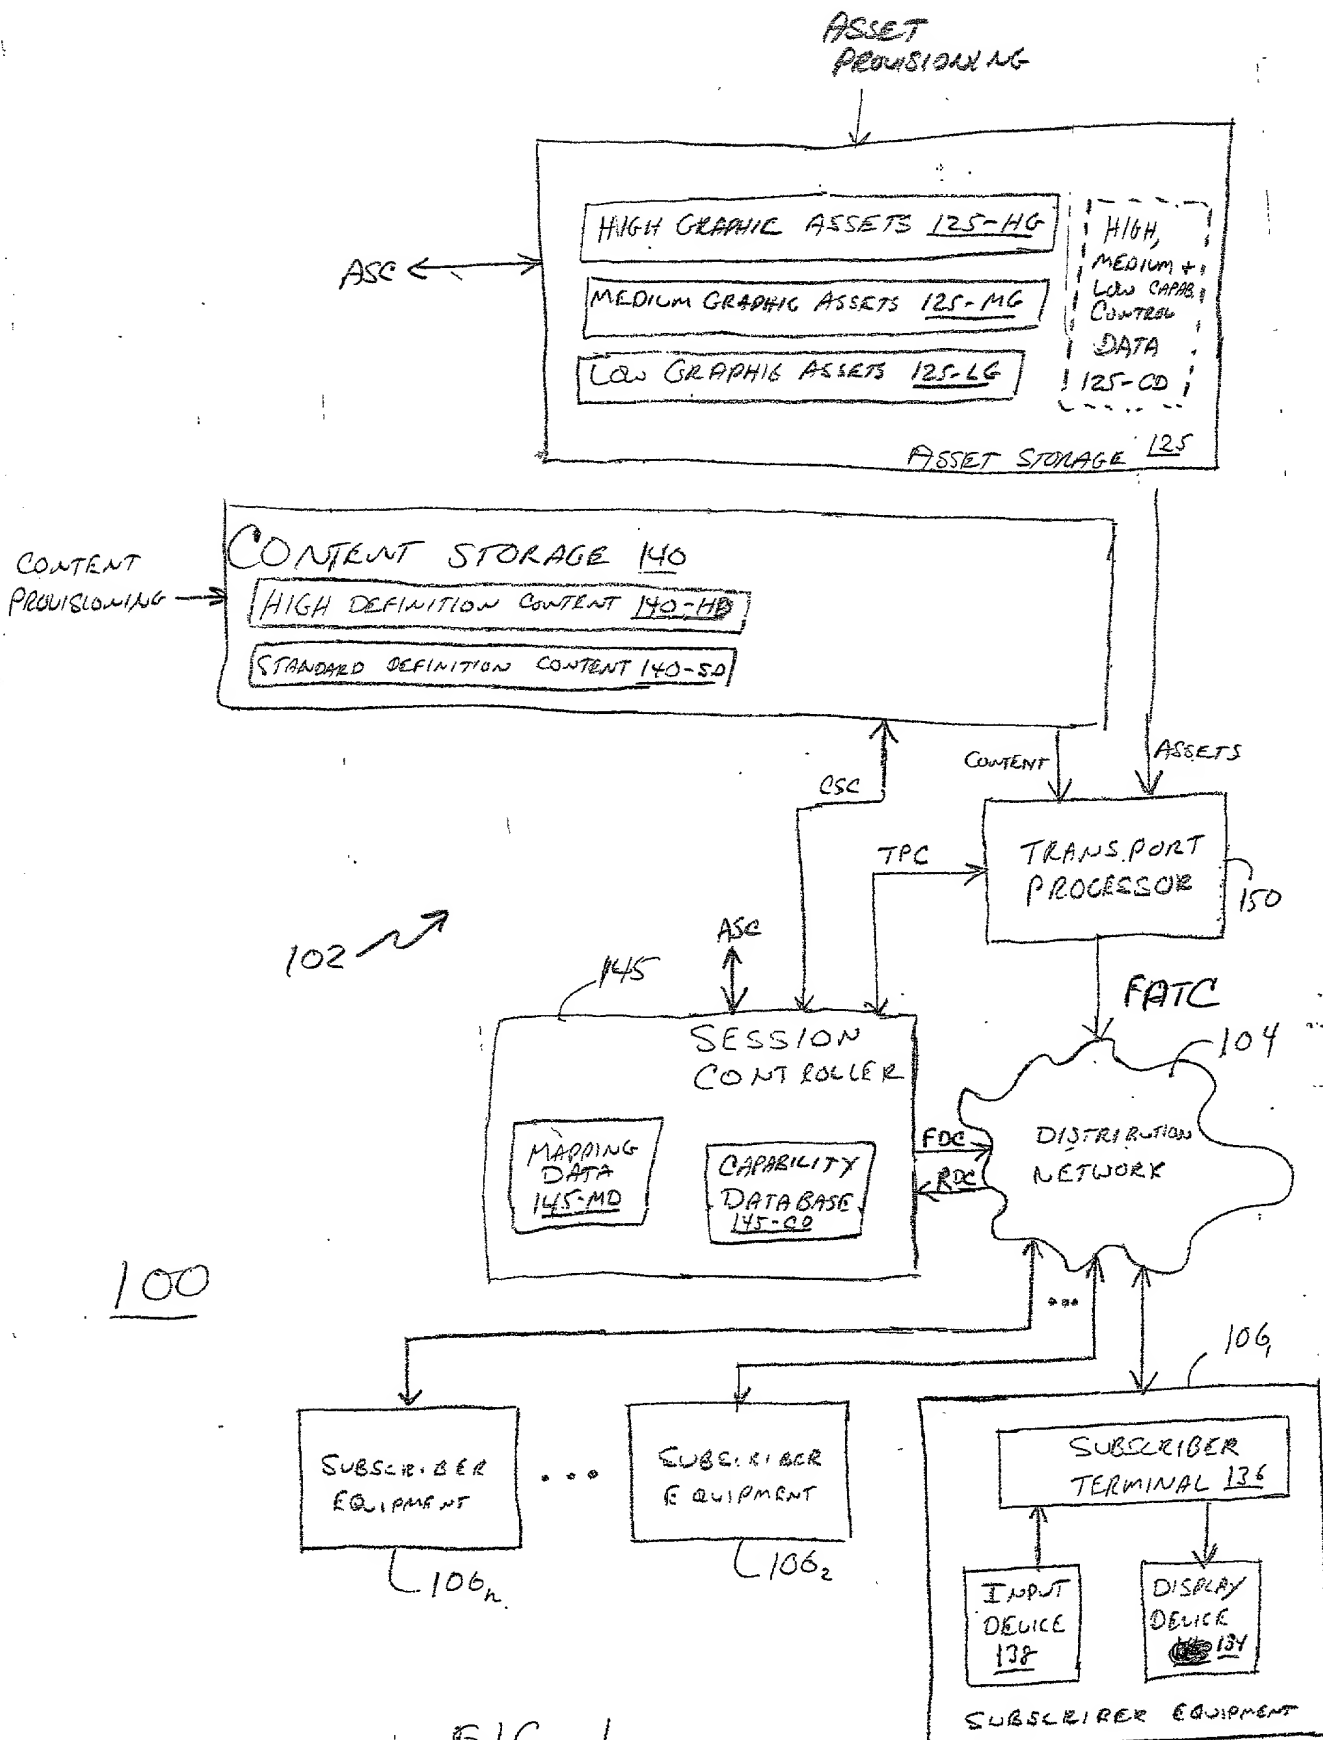 ASSET
PROVISIONING
HIGH GRAPHIC ASSETS 125-HG
MEDIUM GRAPHIC ASSETS 125-MG
LOW GRAPHIC ASSETS 125-LG
HIGH,
MEDIUM +
LOW CAPAB.
CONTROL
DATA
125-CD
ASC
ASSET STORAGE 125
CONTENT
PROVISIONING
CONTENT STORAGE 140
HIGH DEFINITION CONTENT 140-HD
STANDARD DEFINITION CONTENT 140-SD
CONTENT
ASSETS
CSC
TPC
TRANSPORT
PROCESSOR
150
102
145
ASC
FATC
104
SESSION
CONTROLLER
MAPPING
DATA
145-MD
CAPABILITY
DATABASE
145-CD
FDC
RDC
DISTRIBUTION
NETWORK
100
...
106₁
SUBSCRIBER
EQUIPMENT
...
SUBSCRIBER
EQUIPMENT
106n
106₂
SUBSCRIBER
TERMINAL 136
INPUT
DEVICE
138
DISPLAY
DEVICE
134
SUBSCRIBER EQUIPMENT
FIG. 1